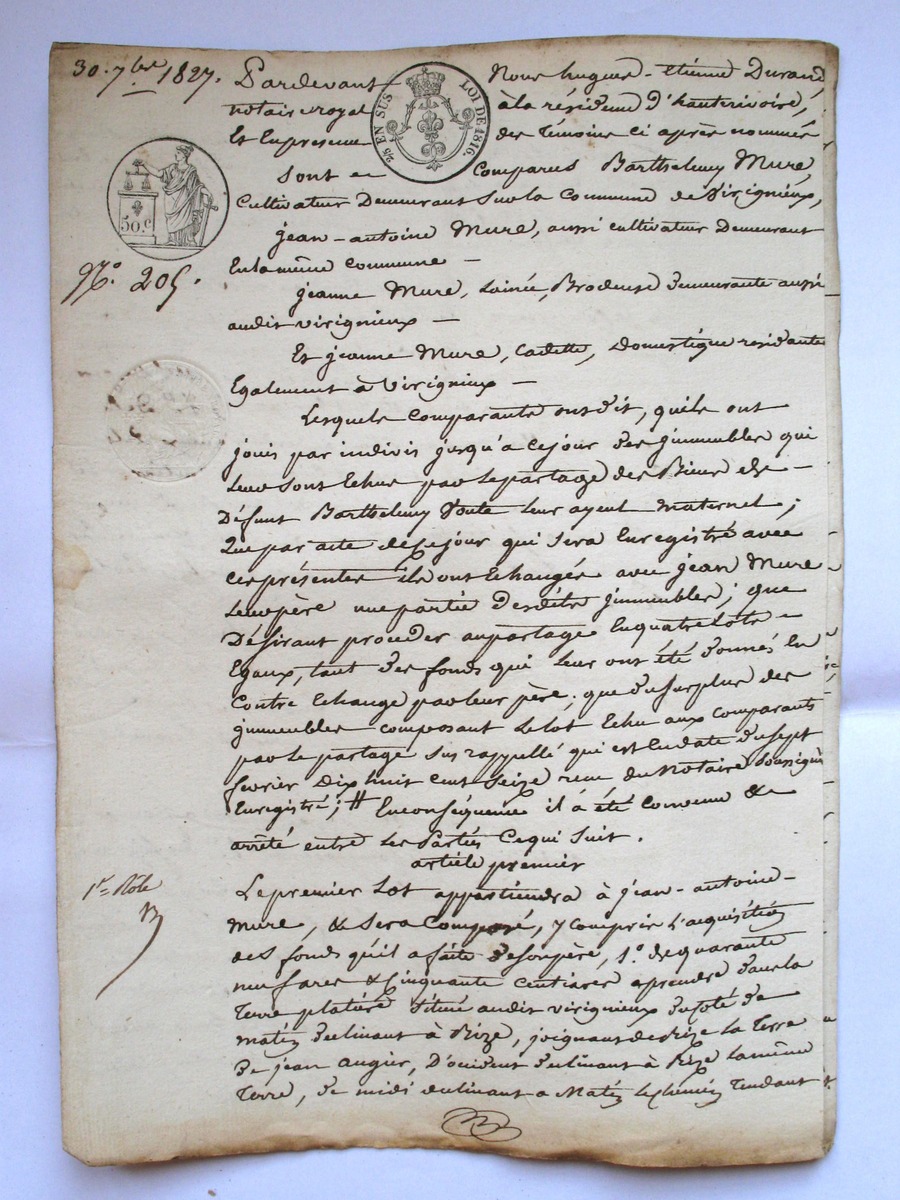 30. 7bre 1827.
Pardevant Nous hugues-etienne Durand
notaire royal à la résidence d'hauterivoire,
Et En présence des Témoins ci après nommés
25 EN SUS LOI DE 1816.
Sont en Comparus Barthelemy Mure,
Cultivateur Demeurant Sur la Commune de Virignieux,
50.c
jean-antoine Mure, aussi cultivateur Demeurant
En la même Commune —
N.o 205.
jeanne Mure, Lainée, Brodeuse demeurante aussi
audit virignieux —
Et jeanne Mure, Cadette, Domestique residante
Egalement à Virignieux —
Lesquels Comparants ont dit, quils ont
jouis par indivis jusqu'a ce jour des jmmeubles qui
Leur sont Echus par Le partage des Biens de —
Défunt Barthelemy Leur ayeul maternel;
Que par acte de Ce jour qui Sera Enregistré avec
Ces présentes ils ont Echangés avec jean Mure
Leur père une partie desdits jmmeubles; que
Désirant proceder au partage En quatre Lots —
Egaux, tant des fonds qui Leur ont été donnés En
Contre Echange par leur père, que du Surplus des
jmmeubles composant Le lot Echu aux Comparants
par Le partage Sus rappellé qui est En date du sept
février Dix huit Cent Seize recu du Notaire Soussigné
Enregistré; # En conséquence il à été Convenu &
arrêté entre Les Parties Ce qui Suit.
article premier
1er Rôle
Le premier Lot appartiendra à jean-antoine-
Mure, & Sera Composé, y Compris L'acquisition
des fonds qu'il a faite de Son père, 1.o de quarante
neuf ares & Cinquante Centiares a prendre dans la
Terre platière Située audit virignieux du Coté de
matin déclinant à Bize, joignant de Bize La Terre
De jean Augier, D'occident déclinant à Bize La même
Terre, de midi declinant a Matin Le chemin Tendant